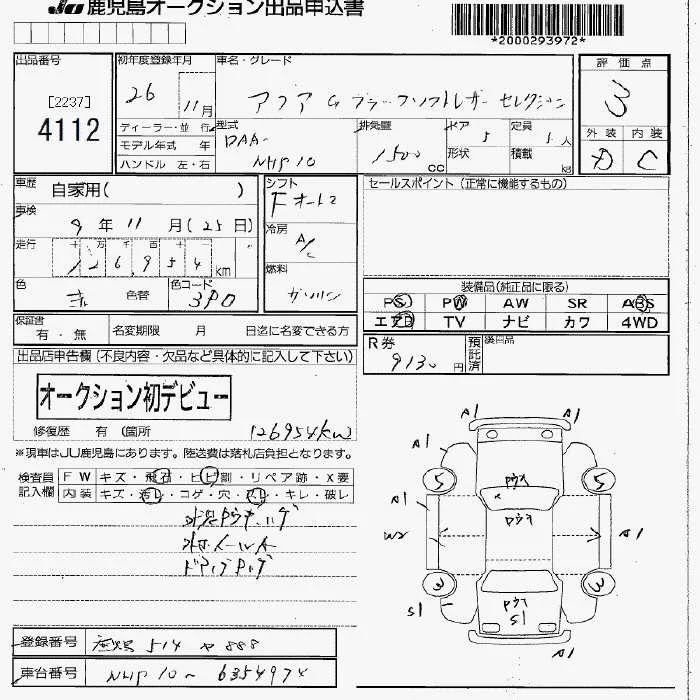 JU 鹿児島オークション出品申込書
*2000293972*
出品番号
[2237]
4112
初年度登録年月
26 11月
車名・グレード
アクア G ブラックソフトレザーセレクション
評価点
3
外装 内装
D C
ディーラー・並行
モデル年式 年
ハンドル 左・右
型式
DAA-
NHP10
排気量
1500 CC
ドア 5
形状
定員 5人
積載 kg
車歴
自家用( )
車検
9年 11月(25日)
走行
十 万 千 百 十 一
126954 km
色
赤
色替
色コード
3P0
シフト
Fオート
冷房
A/C
燃料
ガソリン
セールスポイント(正常に機能するもの)
装備品(純正品に限る)
PS PW AW SR ABS
エアB TV ナビ カワ 4WD
保証書
有・無
名変期限 月 日迄に名変できる方
R券
9130円
預託済
後日品
出品店申告欄(不良内容・欠品など具体的に記入して下さい)
オークション初デビュー
修復歴 有(箇所
126954km
※現車はJU鹿児島にあります。陸送費は落札店負担となります。
検査員記入欄
FW キズ・飛石・ヒビ割・リペア跡・X要
内装 キズ・汚レ・コゲ・穴・スレ・キレ・破レ
登録番号
鹿児島 514 や 888
車台番号
NHP10-6354974
A1 A1
A1
5 5
A1
W2
A1
3 3
S1
S1
A1